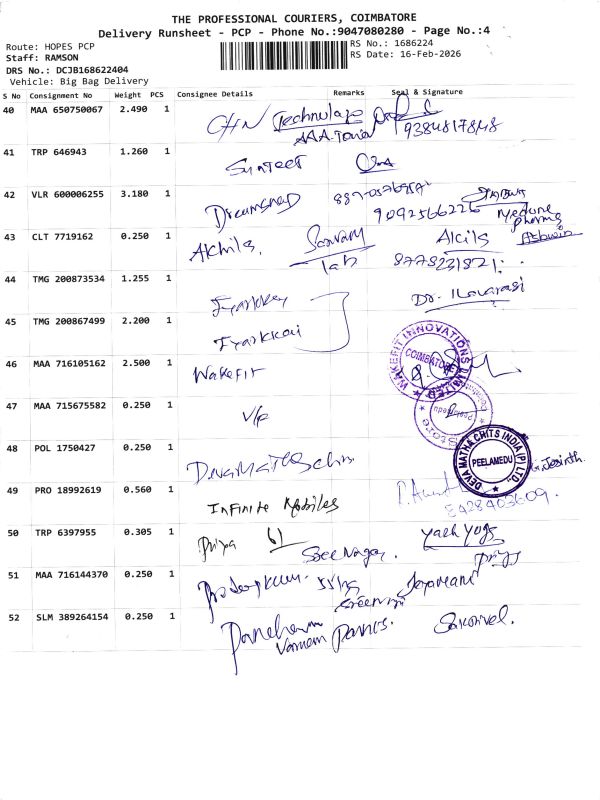 THE PROFESSIONAL COURIERS, COIMBATORE
Delivery Runsheet - PCP - Phone No.:9047080280 - Page No.:4
Route: HOPES PCP
RS No.: 1686224
Staff: RAMSON
RS Date: 16-Feb-2026
DRS No.: DCJB168622404
Vehicle: Big Bag Delivery
S No Consignment No Weight PCS Consignee Details Remarks Seal & Signature
40 MAA 650750067 2.490 1 CHN Technology
AAA Tower 9384817848
41 TRP 646943 1.260 1 Sunteet
42 VLR 600006255 3.180 1 Dreamsned
9092566226 Medune pharma
43 CLT 7719162 0.250 1 Akhils, Saravam lab Akils
8778231821
Ashwin
44 TMG 200873534 1.255 1 Iyarkkai Dr. Ilavarasi
45 TMG 200867499 2.200 1 Iyarkkai
46 MAA 716105162 2.500 1 Wakefit
WAKEFIT INNOVATIONS LIMITED
COIMBATORE
47 MAA 715675582 0.250 1
Store
48 POL 1750427 0.250 1 DevaMathaChits
DEVA MATHA CHITS INDIA (P) LTD.
PEELAMEDU
G. Jesinth.
49 PRO 18992619 0.560 1 Infinite Mobiles
8428403609.
50 TRP 6397955 0.305 1 Priya 61 Sree Nagar. Yash Yogs
Priya
51 MAA 716144370 0.250 1 Pradeepkum.
52 SLM 389264154 0.250 1 Sakthivel.